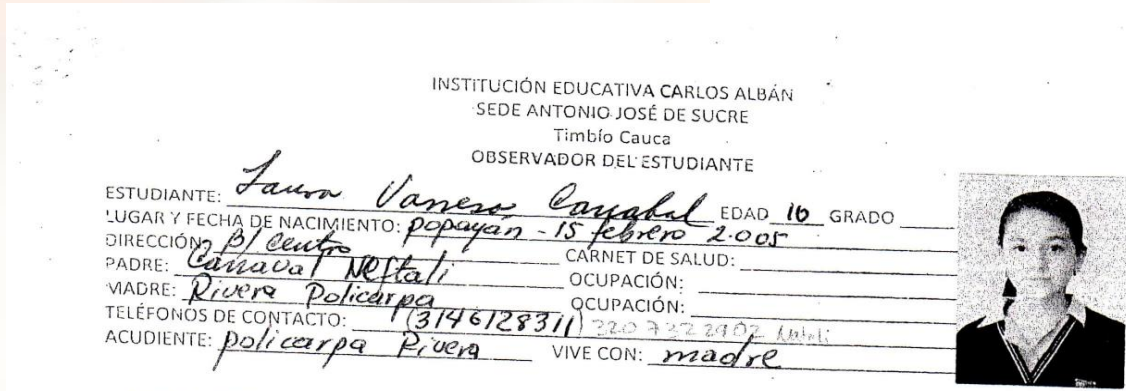 INSTITUCIÓN EDUCATIVA CARLOS ALBÁN
SEDE ANTONIO JOSÉ DE SUCRE
Timbío Cauca
OBSERVADOR DEL ESTUDIANTE
ESTUDIANTE: Laura Vanesa Carrabal EDAD 16 GRADO
LUGAR Y FECHA DE NACIMIENTO: popayán - 15 febrero 2.005
DIRECCIÓN: B/ Centro CARNET DE SALUD:
PADRE: Carraval Neftali OCUPACIÓN:
MADRE: Rivera Policarpa OCUPACIÓN:
TELÉFONOS DE CONTACTO: (3146128311)
ACUDIENTE: policarpa Rivera VIVE CON: madre